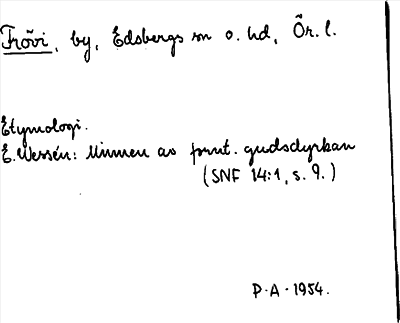 Frövi, by, Edsbergs sn o. hd, Ör. l.
Etymologi.
E. Wessén: Minnen av fornt. gudsdyrkan
(SNF 14:1, s. 9.)
P. A. 1954.